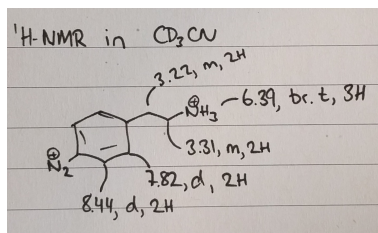 ¹H-NMR in CD₃CN
3.22, m, 2H
⊕
NH₃ 6.39, br. t, 3H
3.31, m, 2H
⊕
N₂
7.82, d, 2H
8.44, d, 2H